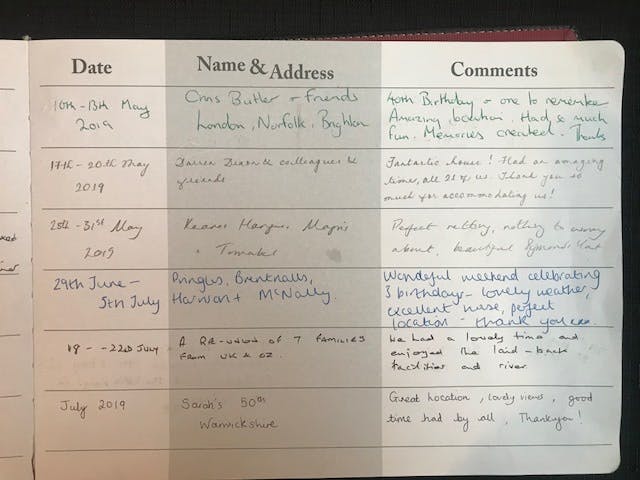 Date Name & Address Comments
10th - 13th May
2019
Cris Butler + friends
London, Norfolk, Brighton
40th Birthday - one to remember
Amazing location. Had so much
fun. Memories created. Thanks
17th - 20th May
2019
Darren & colleagues &
friends
Fantastic house! Had an amazing
time, all 21 of us. Thank you so
much for accommodating us!
25th - 31st May
2019
Perfect setting, nothing to worry
about, beautiful
29th June -
5th July
Pringles, Brentnalls,
Harman + McNally.
Wonderful weekend celebrating
3 birthdays - lovely weather,
excellent house, perfect
location - thank you
- 22nd July
A RE-UNION OF 7 FAMILIES
FROM UK & OZ.
We had a lovely time and
enjoyed the laid-back
facilities and river
July 2019
Sarah's 50th
Warwickshire
Great location, lovely views, good
time had by all, Thankyou!